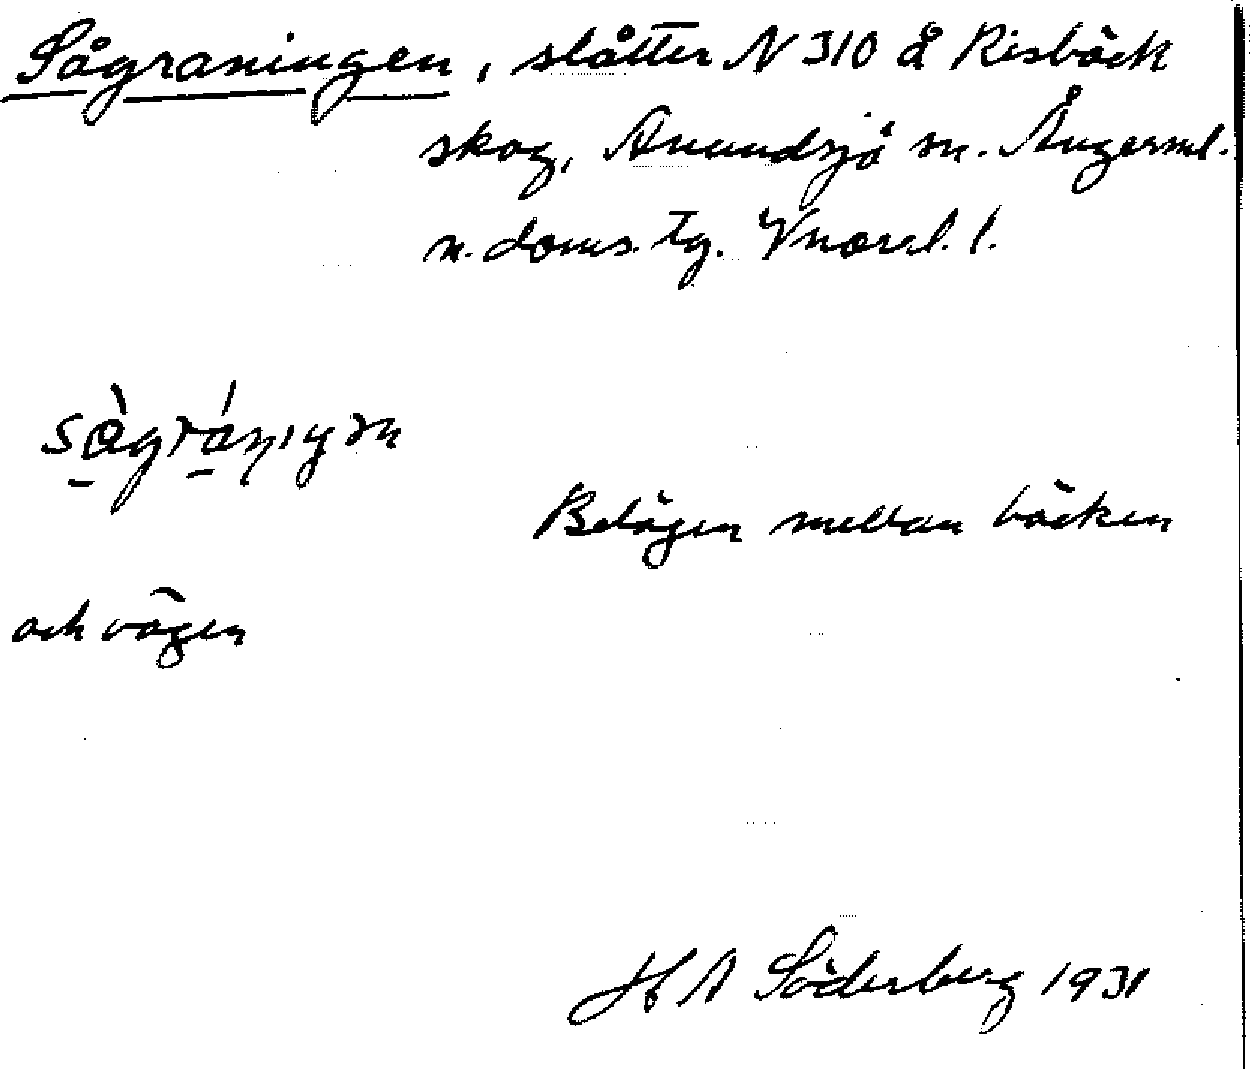 Sågraningen, slåtter N 310 å Risbäck
skog, Anundsjö sn. Ångerml.
n. doms. tg. Vnorrl. l.
Belägen mellan bäcken
och vägen
H A Söderberg 1931